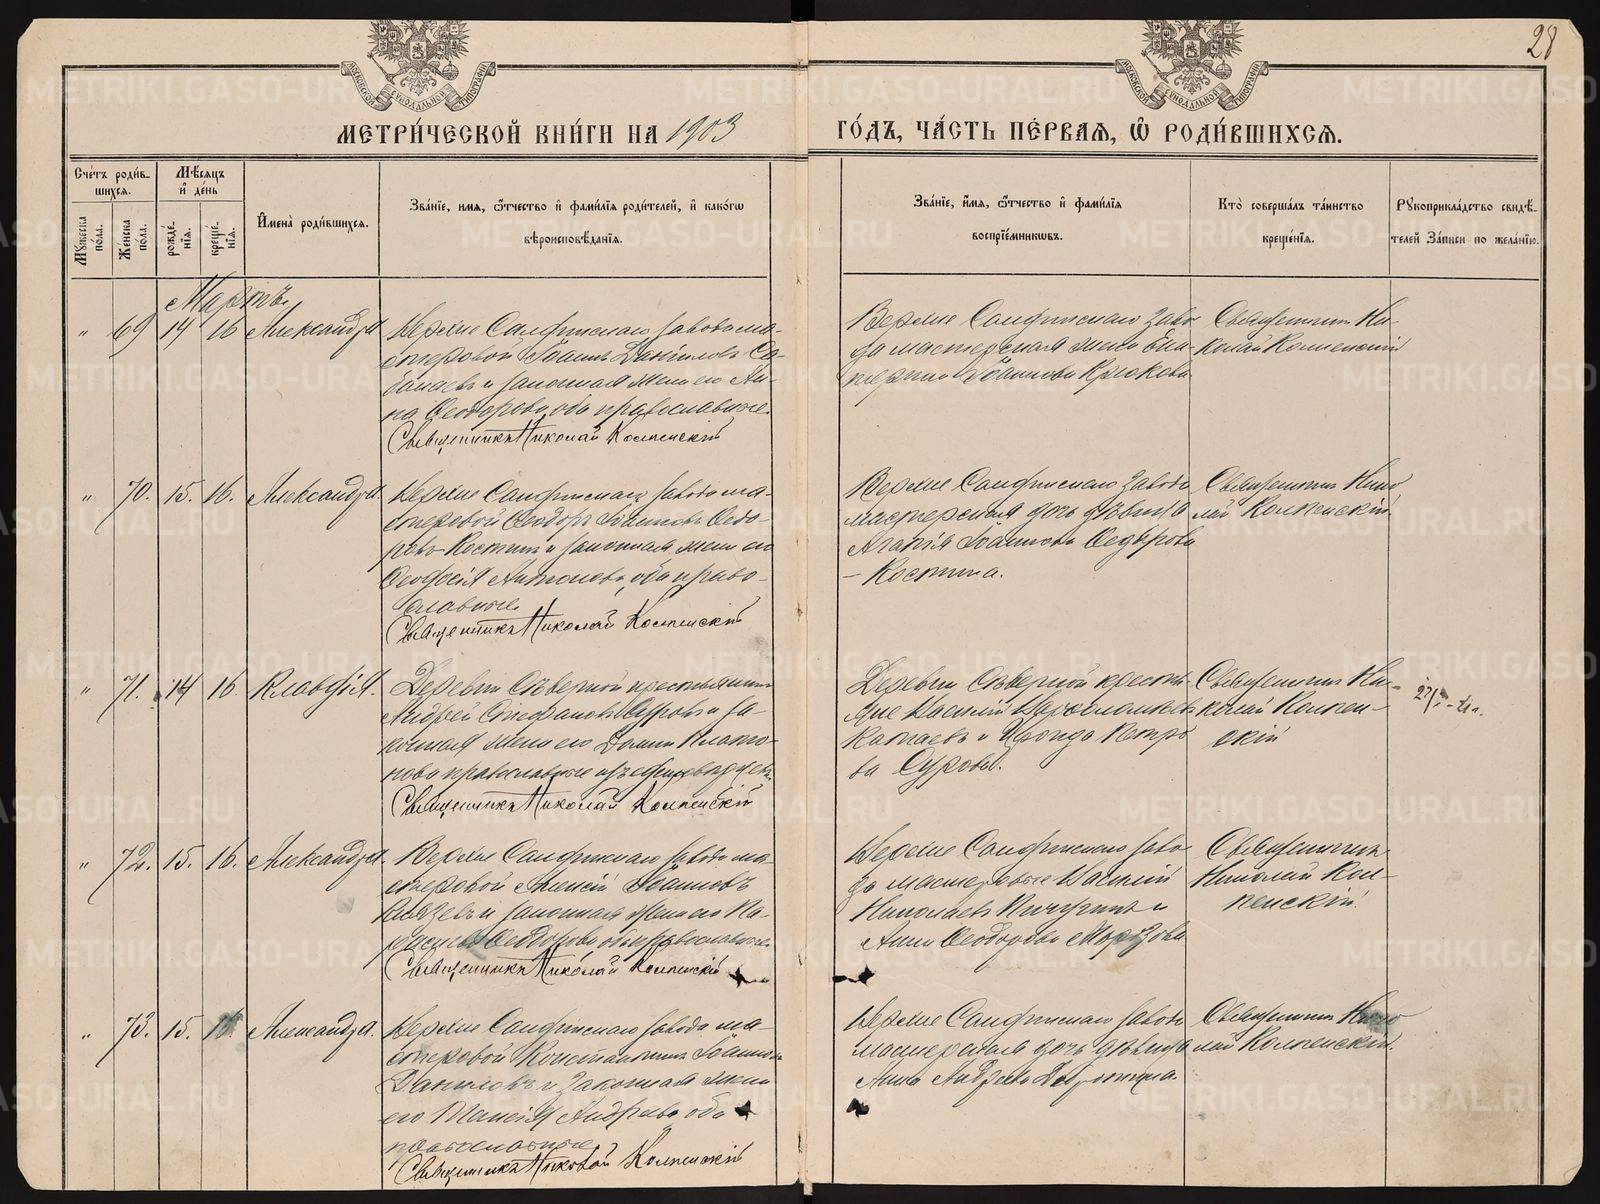 28
МОСКОВСКОЙ СѴНОДАЛЬНОЙ ТИПОГРАФІИ
МОСКОВСКОЙ СѴНОДАЛЬНОЙ ТИПОГРАФІИ
МЕТРИ́ЧЕСКОЙ КНИ́ГИ НА 1903
ГО́ДЪ, ЧА́СТЬ ПЕ́РВАѦ, Ѽ РОДИ́ВШИХСѦ.
Сче́тъ роди́в-
шихся.
Мꙋжеска по́ла.
Женска по́ла.
Мѣ́сяцъ
и҆ де́нь
рожде́-
нїя.
креще́-
нїя.
И҆мена̀ роди́вшихся.
Зва́нїе, имя, ѻ҆́тчество и҆ фами́лїя роди́телей, и҆ како́гѡ
вѣроисповѣ́данїя.
Зва́нїе, и҆́мя, ѻ҆́тчество и҆ фами́лїя
воспрїе́мникѡвъ.
Кто̀ соверша́лъ та́инство
креще́нїя.
Рꙋкоприкла́дство свидѣ́-
телей За́писи по жела́нїю.
Мартъ.
" 69 14 16 Александра
Верхне Салдинскаго завода ма-
стеровой Іоаннъ Даніиловъ
и законная жена его Ан-
на Ѳеодорова, оба православные.
Священникъ Николай Колпенскій
Верхне Салдинскаго заво-
да мастерская жена
Іоаннова Крюкова.
Священникъ Ни-
колай Колпенскій
" 70. 15. 16. Александра.
Верхне Салдинскаго завода ма-
стеровой Ѳеодоръ Іоанновъ Ѳедо-
ровъ Костинъ и законная жена его
Антонова, оба право-
славные.
Священникъ Николай Колпенскій
Верхне Салдинскаго завода
мастерская дочь дѣвица
Агапія Іоаннова Ѳедорова
- Костина.
Священникъ Нико
лай Колпенскій.
" 71. 14 16 Клавдія.
Деревни Сѣверной крестьянинъ
Андрей Стефановъ Суровъ и за-
конная жена его Домна Плато-
нова, православные
Священникъ Николай Колпенскій
Деревни Сѣверной кресть-
яне Василій
Катаевъ и Петро
ва Сурова.
Священникъ Ни-
колай Колпен-
скій
" 72. 15. 16. Александра.
Верхне Салдинскаго завода ма-
стеровой Алексій Іоанновъ
Князевъ и законная жена его Па-
раскева Ѳеодорова, оба православные.
Священникъ Николай Колпенскій
Верхне Салдинскаго заво-
да мастеровые Василій
Николаевъ Пичугинъ и
Анна Ѳеодорова Морозова
Священникъ
Николай Кол-
пенскій.
" 73. 15. Александра.
Верхне Салдинскаго завода ма-
стеровой Константинъ Іоанновъ
Даниловъ и законная жена
его Таисія Андреева, оба
православные
Священникъ Николай Колпенскій
Верхне Салдинскаго завода
мастерская дочь дѣвица
Анна Андреева
Священникъ Нико
лай Колпенскій.
METRIKI.GASO-URAL.RU